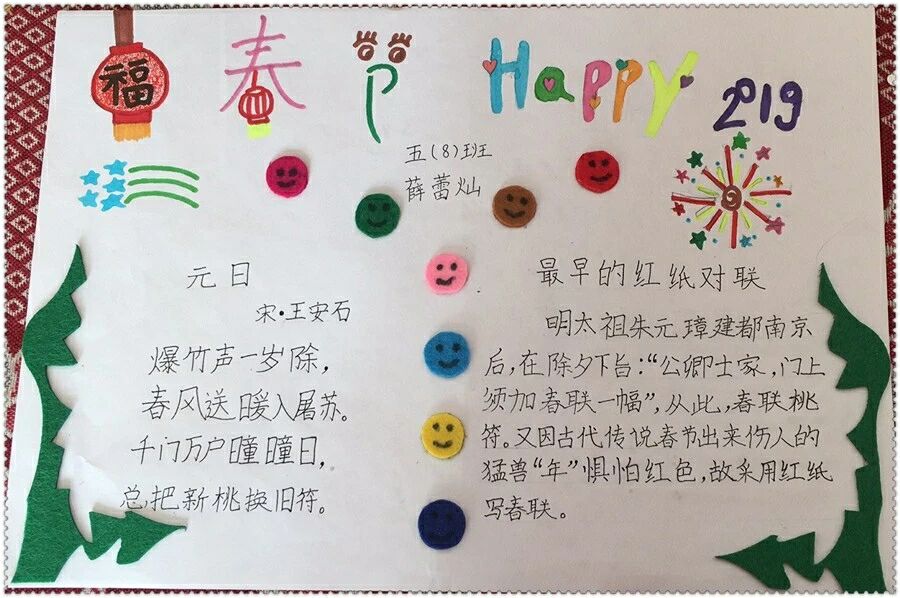 福
春节 Happy 2019
五(8)班
薛蕾灿
元日
宋·王安石
爆竹声一岁除,
春风送暖入屠苏。
千门万户曈曈日,
总把新桃换旧符。
最早的红纸对联
明太祖朱元璋建都南京
后,在除夕下旨:“公卿士家,门上
须加春联一幅”,从此,春联桃
符。又因古代传说春节出来伤人的
猛兽“年”惧怕红色,故采用红纸
写春联。